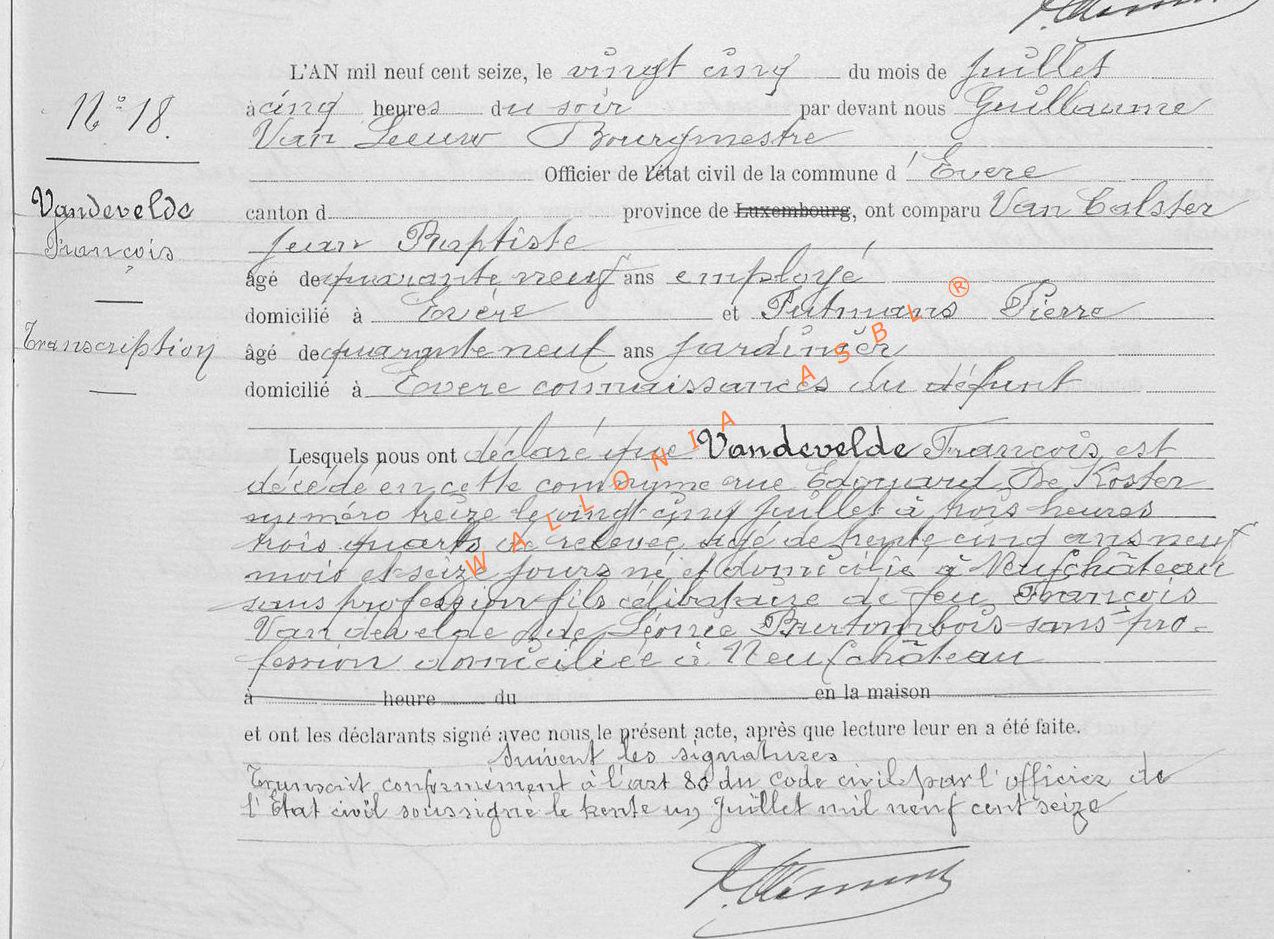 L'AN mil neuf cent seize, le vingt cinq du mois de Juillet
N° 18.
à cinq heures du soir par devant nous Guillaume
Van Leeuw Bourgmestre
Officier de l'état civil de la commune d'Evere
Vandevelde
François
canton d province de Luxembourg, ont comparu Van Calster
Jean Baptiste
âgé de quarante neuf ans employé
domicilié à Evere et Putmans Pierre
Transcription
âgé de quarante neuf ans jardinier
domicilié à Evere connaissances du défunt
Lesquels nous ont déclaré que Vandevelde François, est
décédé en cette commune rue Edouard De Koster
numéro treize le vingt cinq Juillet à trois heures
trois quarts de relevée, agé de trente cinq ans neuf
mois et seize jours né et domicilié à Neufchâteau
sans profession fils célibataire de feu François
Vandevelde et de Léonie Burtombois sans pro-
fession domiciliée à Neufchâteau
à heure du en la maison
et ont les déclarants signé avec nous le présent acte, après que lecture leur en a été faite.
Suivent les signatures
Transcrit conformément à l'art 80 du code civil par l'officier de
l'Etat civil soussigné le trente un Juillet mil neuf cent seize
WALLONIA ASBL ®